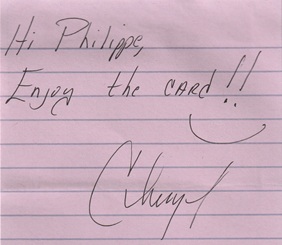 Hi Philippe,
Enjoy the CARd!!
Cheryl